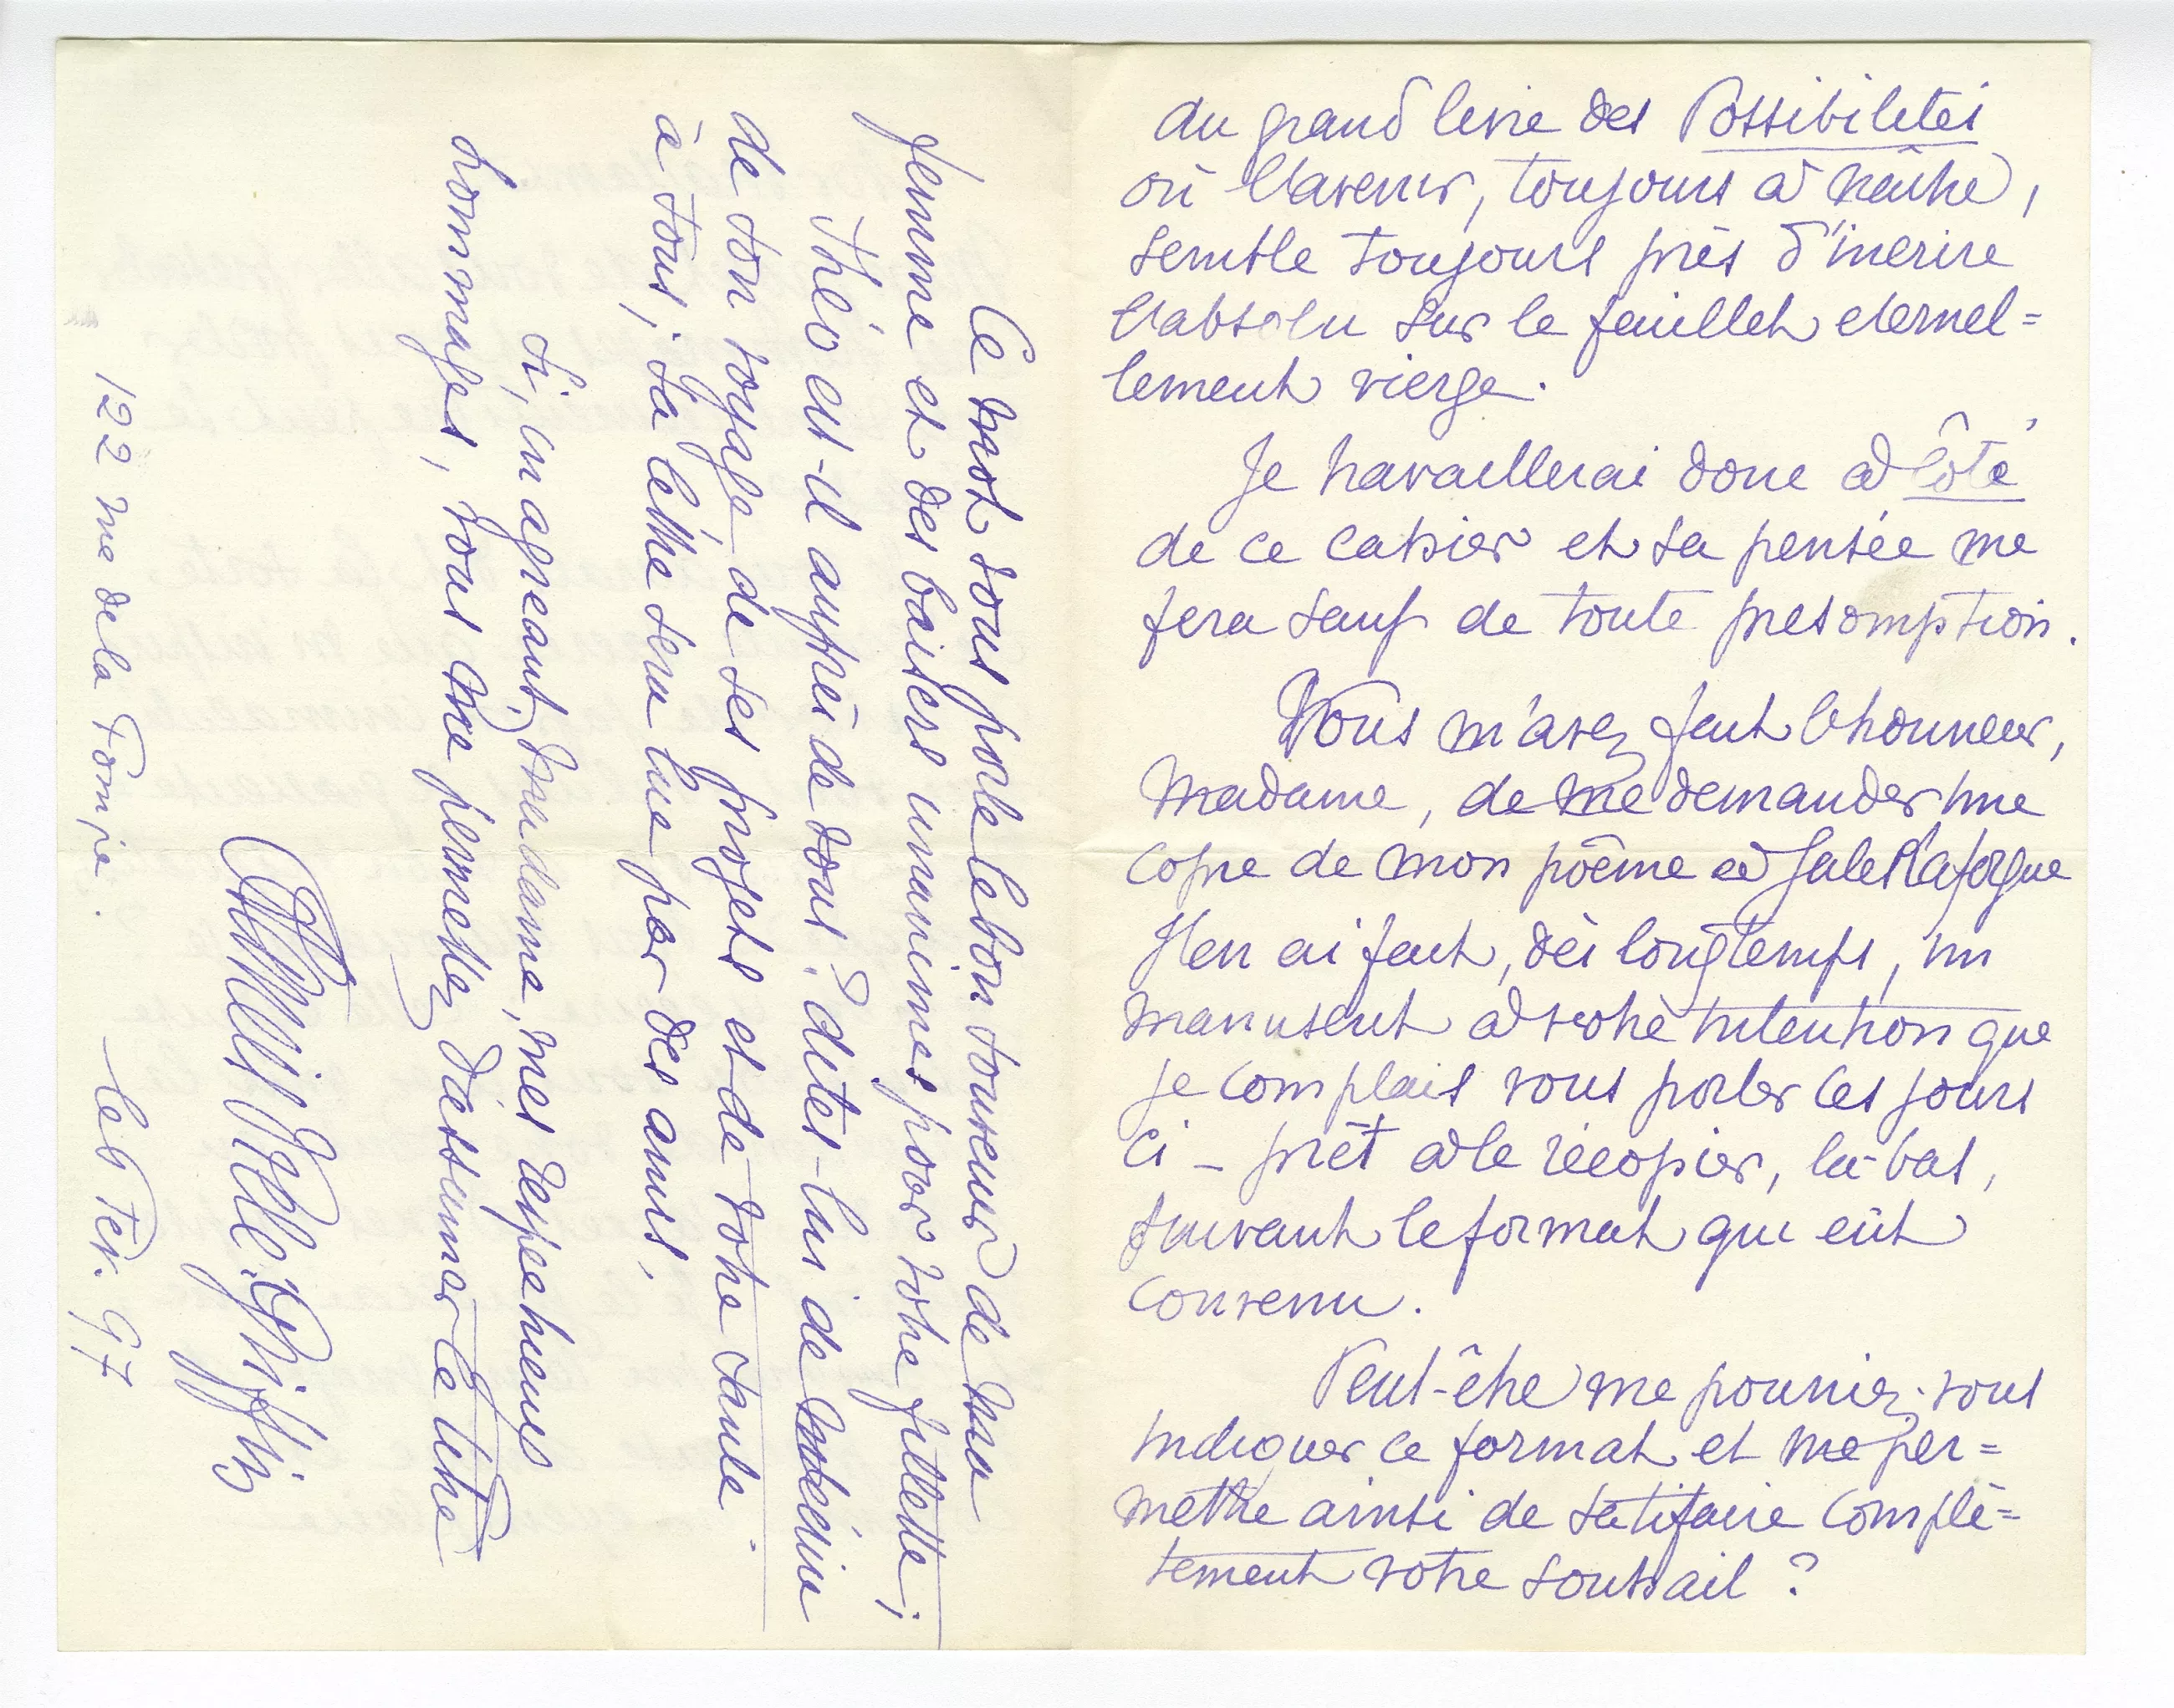 du grand livre des Possibilités
où l'avenir, toujours à naître,
semble toujours près d'inscrire
l'absolu sur le feuillet eternel=
lement vierge.
Je travaillerai donc à côté
de ce cahier et sa pensée me
fera sauf de toute presomption.
Vous m'avez fait l'honneur,
Madame, de me demander une
copie de mon poême à Jules Laforgue
J'en ai fait, dès longtemps, un
manuscrit à votre intention que
je comptais vous porter ces jours
ci – prêt à le recopier, là-bas,
suivant le format qui eût
convenu.
Peut-être me pourriez-vous
indiquer ce format et me per=
mettre ainsi de satifaire complè=
tement votre souhait ?
Ce mot vous porte le bon souvenir de ma
femme et des baisers unanimes pour votre fillette ;
Théo est-il auprès de vous ? dites-lui de m'écrire
de son voyage, de ses projets et de votre santé
à tous ; sa lettre sera lue par des amis,
si, en agreant, Madame, mes respectueux
hommages, vous me permettez d'assumer ce titre
Francis Vielé-Griffin
122 rue de la Pompe. le 6 Fév. 97